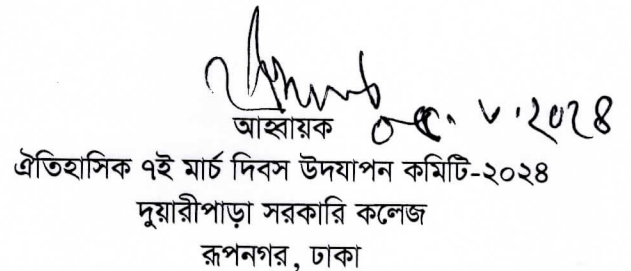 আহ্বায়ক
ঐতিহাসিক ৭ই মার্চ দিবস উদযাপন কমিটি-২০২৪
দুয়ারীপাড়া সরকারি কলেজ
রূপনগর, ঢাকা